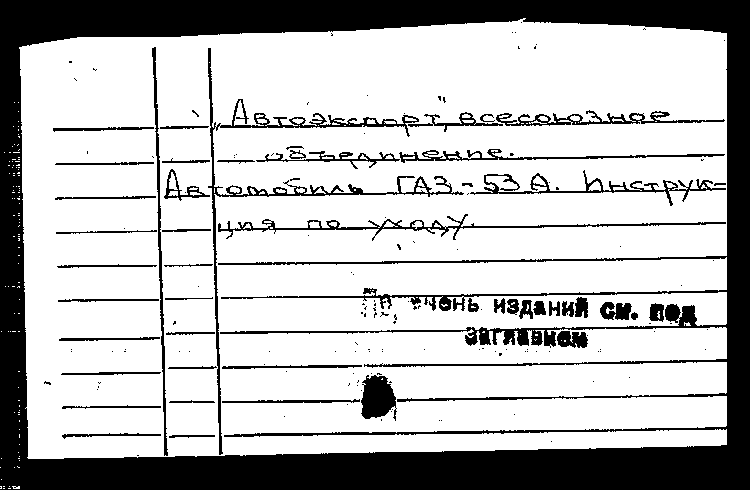 "Автоэкспорт", всесоюзное
объединение.
Автомобиль ГАЗ-53А. Инструк-
ция по уходу.
Перечень изданий см. под
заглавием